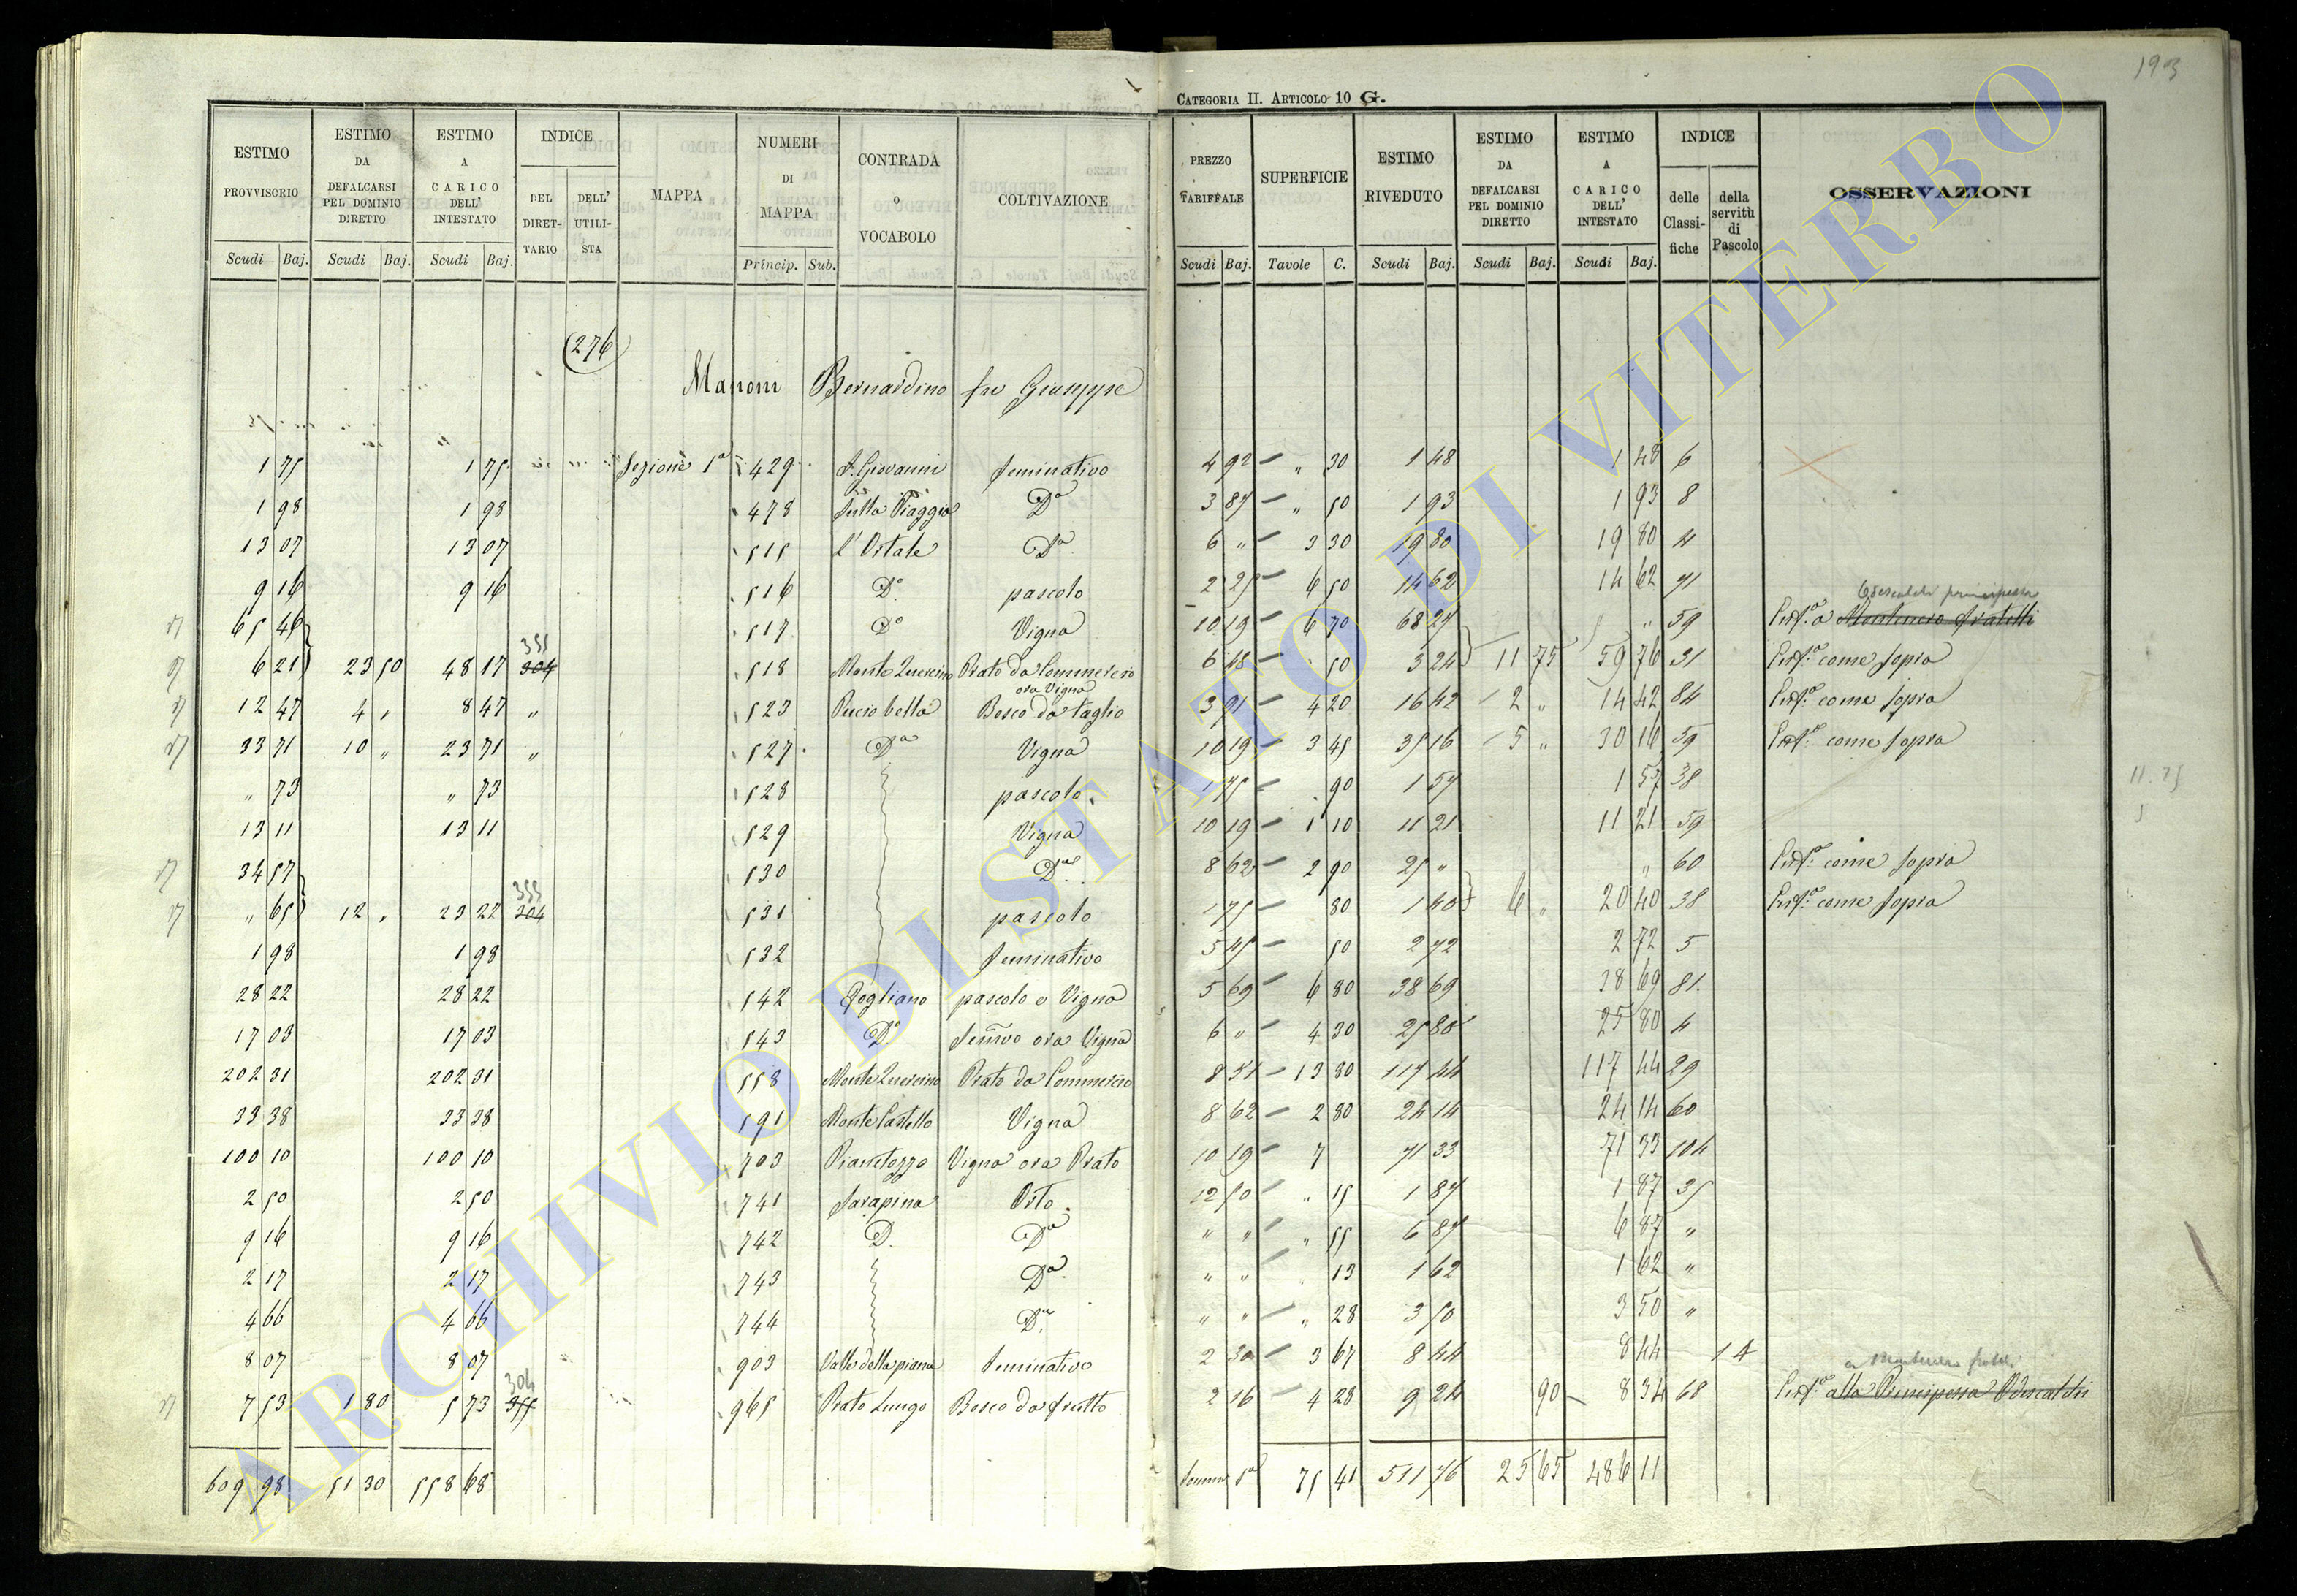 193
CATEGORIA II. ARTICOLO 10 G.
ESTIMO PROVVISORIO Scudi Baj.
ESTIMO DA DEFALCARSI PEL DOMINIO DIRETTO Scudi Baj.
ESTIMO A CARICO DELL' INTESTATO Scudi Baj.
INDICE DEL DIRETTARIO DELL' UTILISTA
MAPPA
NUMERI DI MAPPA Princip. Sub.
CONTRADA O VOCABOLO
COLTIVAZIONE
PREZZO TARIFFALE Scudi Baj.
SUPERFICIE Tavole C.
ESTIMO RIVEDUTO Scudi Baj.
ESTIMO DA DEFALCARSI PEL DOMINIO DIRETTO Scudi Baj.
ESTIMO A CARICO DELL' INTESTATO Scudi Baj.
INDICE delle Classifiche della servitù di Pascolo
OSSERVAZIONI
(276)
Manoni Bernardino fu Giuseppe
1 75 1 75 Sezione 1a 429 S. Giovanni Seminativo 4 92 " 30 1 48 1 48 6
1 98 1 98 478 Sulla Piaggia Da 3 87 " 50 1 93 1 93 8
13 07 13 07 515 L'Ortale Da 6 " 3 30 19 80 19 80 4
9 16 9 16 516 Do pascolo 2 25 6 50 14 62 14 62 71
Odescalchi principessa
65 46 517 Do Vigna 10 19 6 70 68 27 " 59 Enfa a Montenero fratelli
355
6 21 23 50 48 17 304 518 Monte Quercino Prato da Commercio 6 48 50 3 24 11 75 59 76 31 Enfa come sopra
ora Vigna
12 47 4 " 8 47 " 523 Pucio bella Bosco da taglio 3 91 4 20 16 42 2 " 14 42 84 Enfa come sopra
33 71 10 " 23 71 " 527 Da Vigna 10 19 3 45 35 16 5 " 30 16 59 Enfa come sopra
" 73 " 73 528 pascolo 1 75 90 1 57 1 57 38
11.75
13 11 13 11 529 Vigna 10 19 1 10 11 21 11 21 59
34 57 530 Da 8 62 2 90 25 " " 60 Enfa come sopra
355
" 65 12 " 23 22 304 531 pascolo 1 75 80 1 40 6 " 20 40 38 Enfa come sopra
1 98 1 98 532 Seminativo 5 45 50 2 72 2 72 5
28 22 28 22 542 Gogliano pascolo e Vigna 5 69 6 80 38 69 38 69 81
17 03 17 03 543 Do Semivo ora Vigna 6 " 4 30 25 80 25 80 4
202 31 202 31 558 Monte Quercino Prato da Commercio 8 51 13 80 117 44 117 44 29
33 38 33 38 591 Monte Castello Vigna 8 62 2 80 24 14 24 14 60
100 10 100 10 703 Pianetozzo Vigna ora Prato 10 19 7 71 33 71 33 104
2 50 2 50 741 Sarapina Orto 12 50 " 15 1 87 1 87 35
9 16 9 16 742 D. Da " " " 55 6 87 6 87 "
2 17 2 17 743 Da " " 13 1 62 1 62 "
4 66 4 66 744 Da " " " 28 3 50 3 50 "
8 07 8 07 903 Valle della piana Seminativo 2 30 3 67 8 44 8 44 14
304
a Montenero fratelli
7 53 1 80 5 73 355 965 Prato Lungo Bosco da frutto 2 16 4 28 9 24 90 8 34 68 Enfa alla Principessa Odescalchi
609 98 51 30 558 68 Somma 1a 75 41 511 76 25 65 486 11
ARCHIVIO DI STATO DI VITERBO